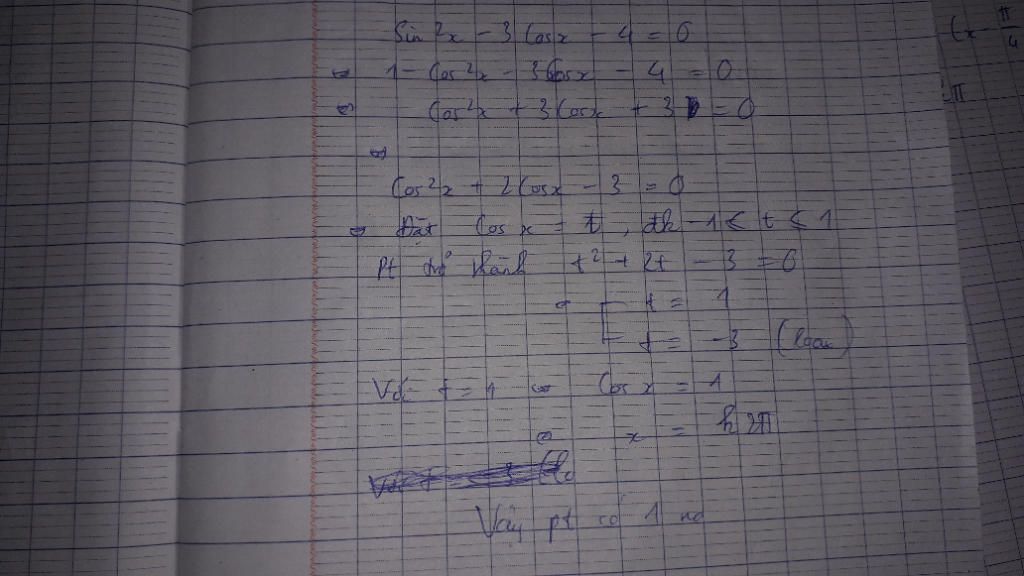 Sin²x - 3 Cosx - 4 = 0
⇔ 1 - Cos²x - 3Cosx - 4 = 0
⇔ Cos²x + 3 Cosx + 3 = 0
⇔
Cos²x + 2 Cosx - 3 = 0
⇔ Đặt Cos x = t, đk -1 ≤ t ≤ 1
Pt trở thành t² + 2t - 3 = 0
⇔ [ t = 1
t = -3 (loại)
Với t = 1 ⇔ Cos x = 1
⇔ x = k2π
Vậy pt có 1 no
(x - π/4
2π